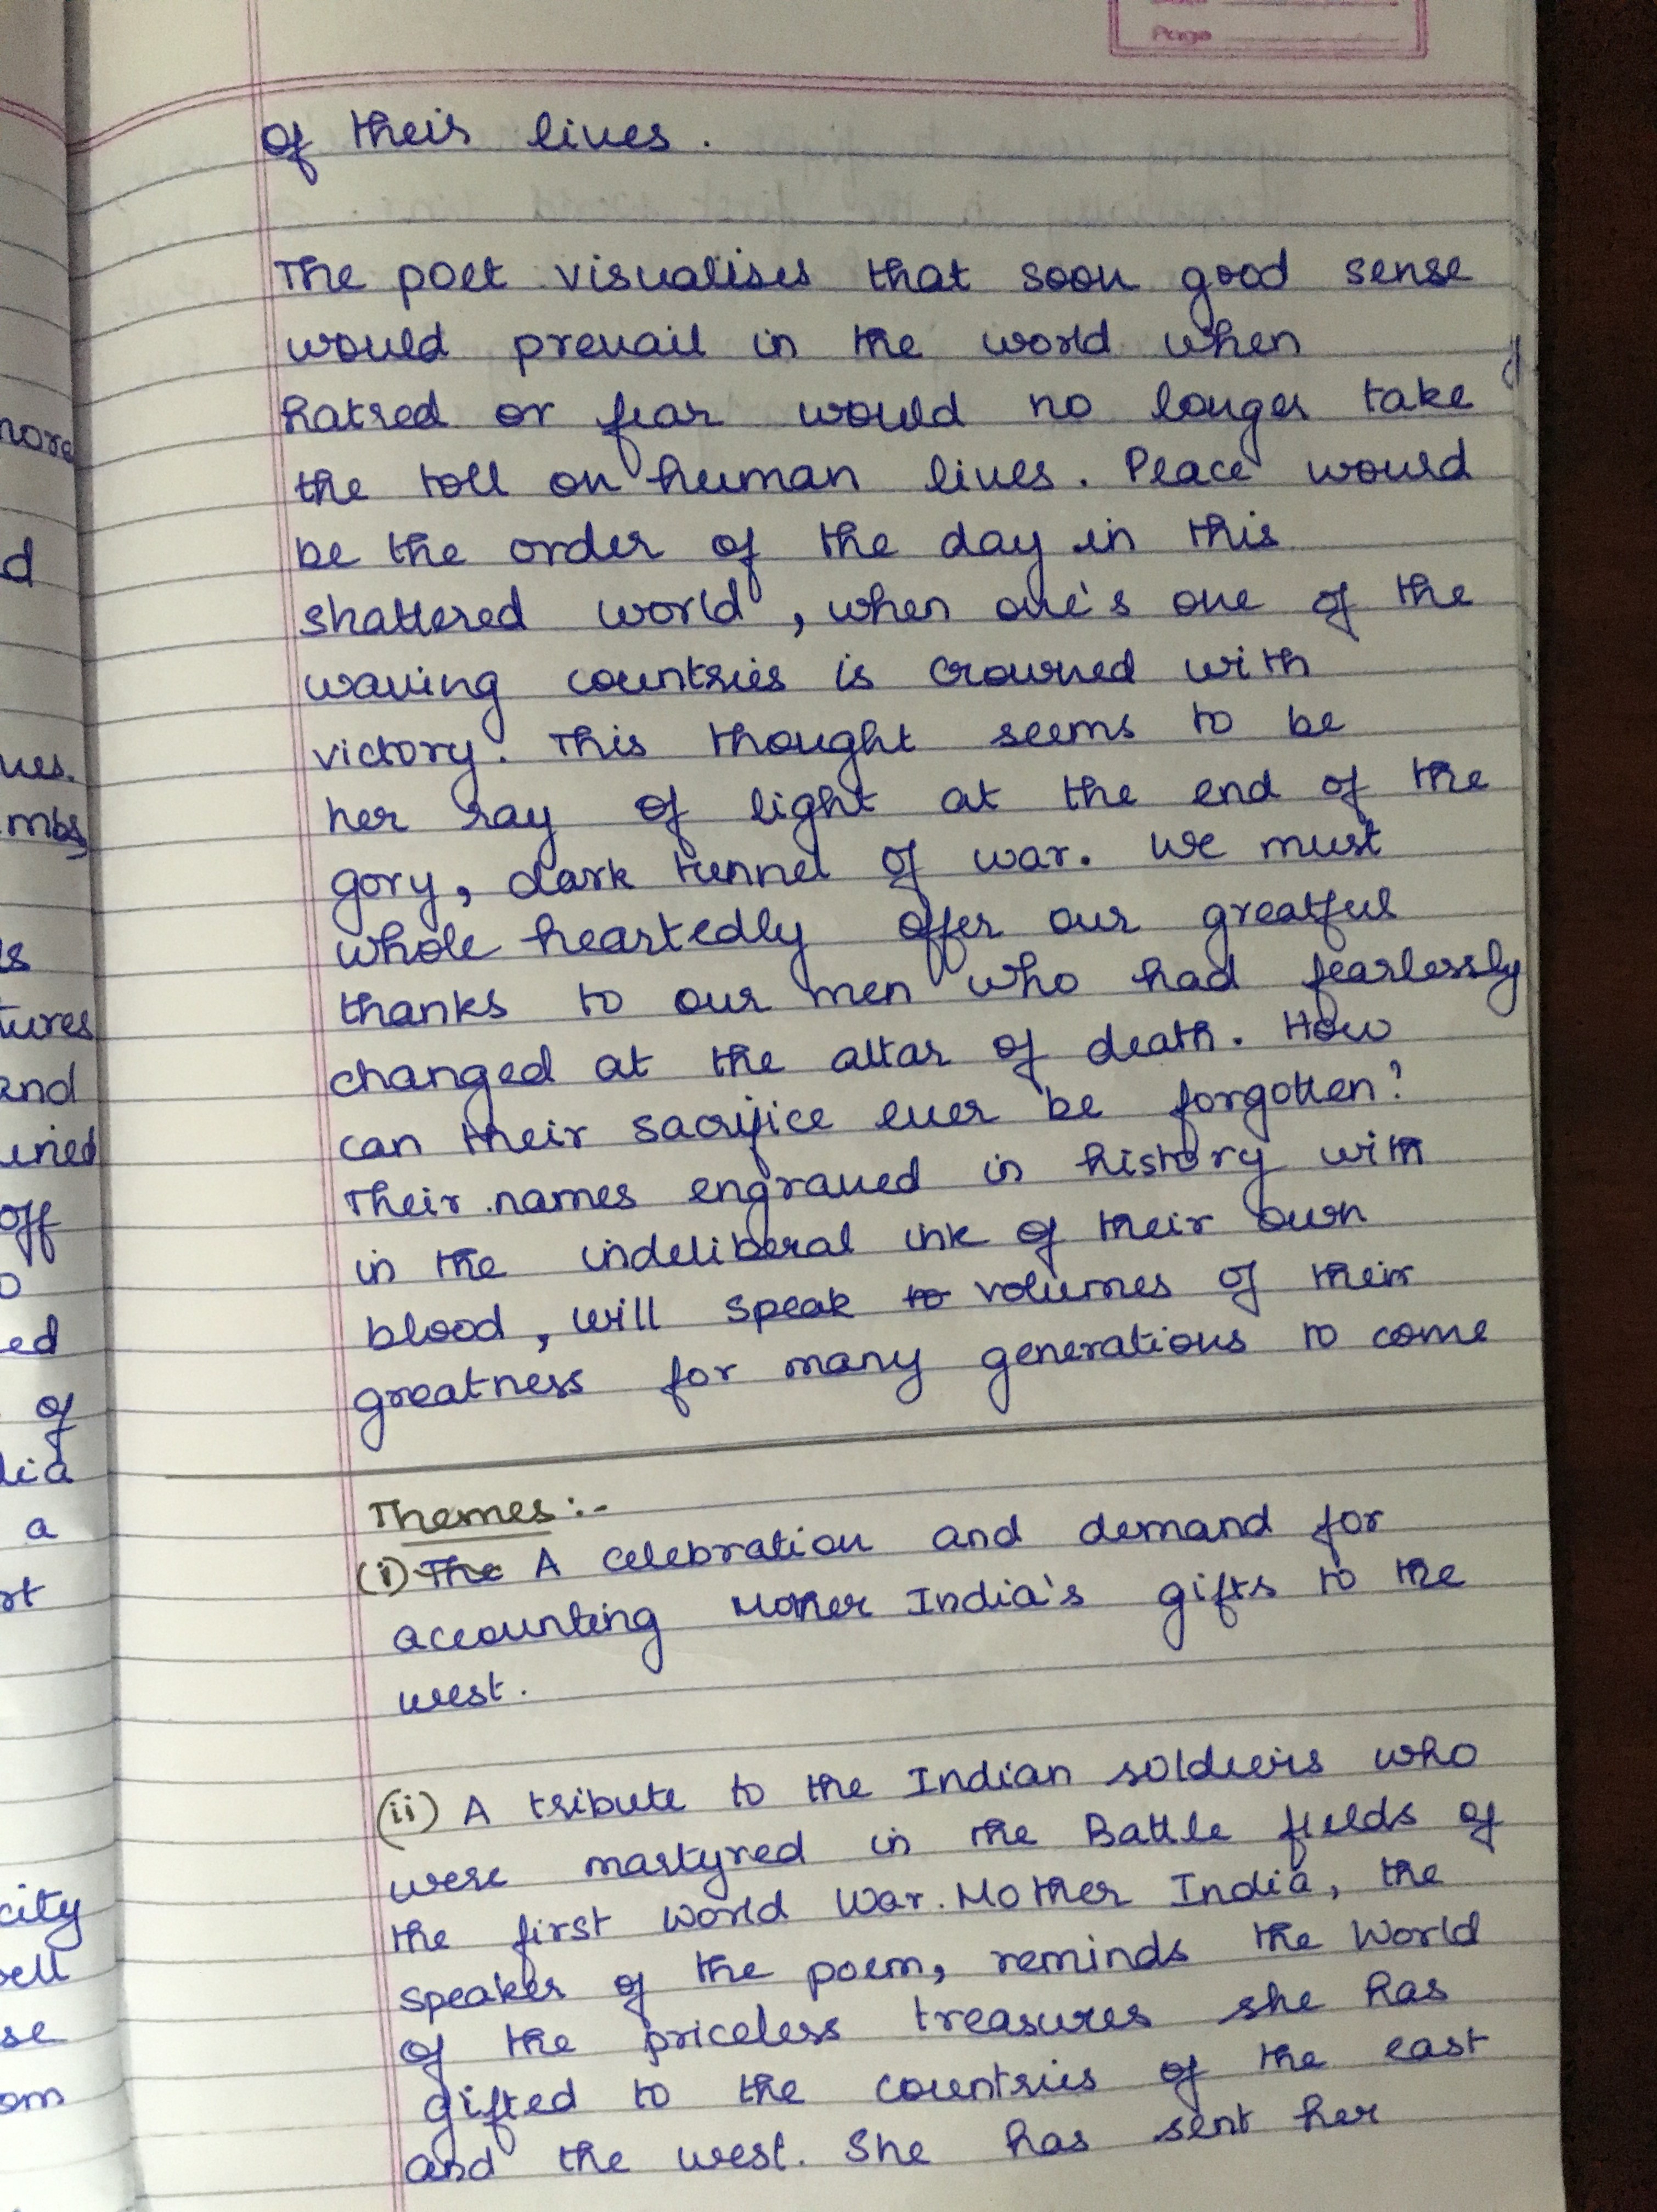 Page
of their lives.
The poet visualises that soon good sense
would prevail in the world when
hatred or fear would no longer take
the toll on human lives. Peace would
be the order of the day in this
shattered world, when one's one of the
waving countries is crowned with
victory. This thought seems to be
her ray of light at the end of the
gory, dark tunnel of war. We must
whole heartedly offer our greatful
thanks to our men who had fearlessly
changed at the altar of death. How
can their sacrifice ever be forgotten?
Their names engraved in history with
in the indeliberal ink of their own
blood, will speak to volumes of their
greatness for many generations to come
Themes:-
(i) The A celebration and demand for
accounting Mother India's gifts to the
west.
(ii) A tribute to the Indian soldiers who
were martyred in the Battle fields of
the first World War. Mother India, the
speaker of the poem, reminds the World
of the priceless treasures she has
gifted to the countries of the east
and the west. She has sent her